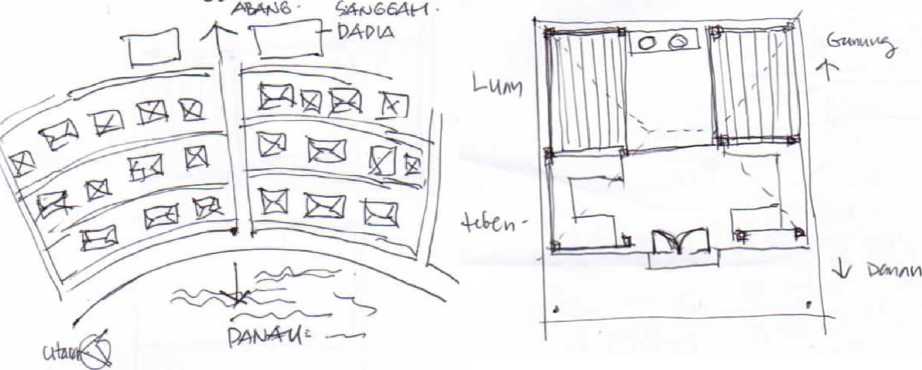 ABANG.
SANGGAH.
DADIA
DANAU
Utara
Luan
teben
Gunung
Danau